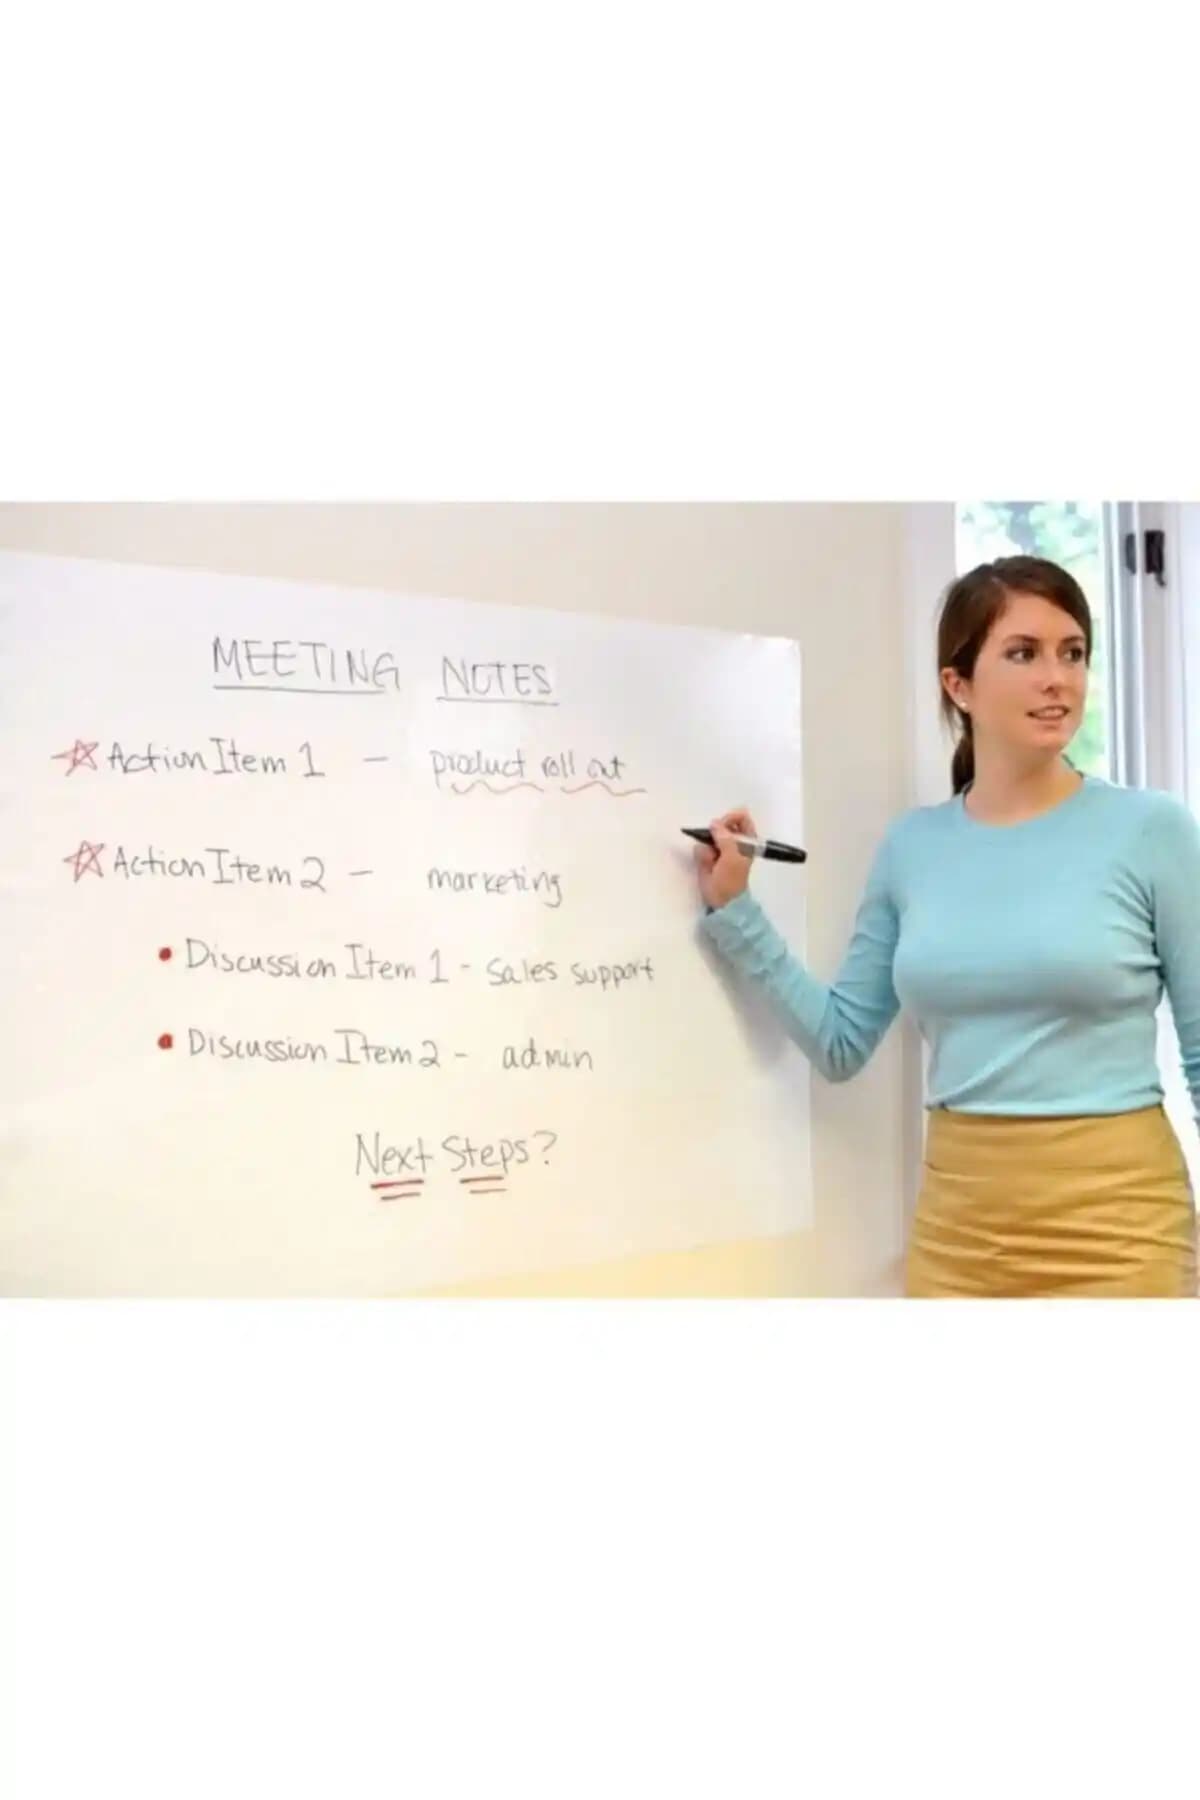 MEETING NOTES
Action Item 1 - product roll out
Action Item 2 - marketing
• Discussion Item 1 - Sales support
• Discussion Item 2 - admin
Next Steps?